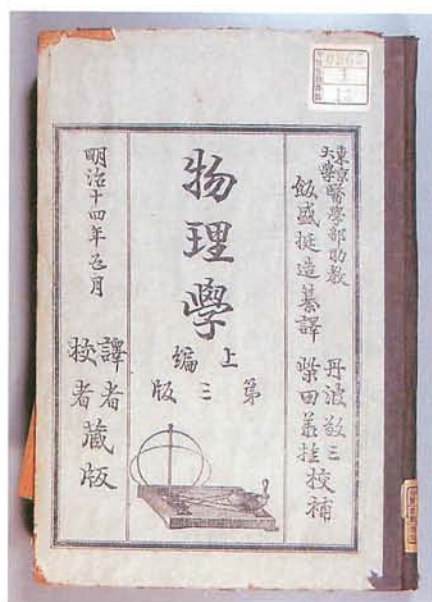 東京大學醫學部助教
飯盛挺造纂譯
丹波敬三
柴田承桂校補
物理學
上編
第三版
明治十四年五月
譯者
校者
藏版